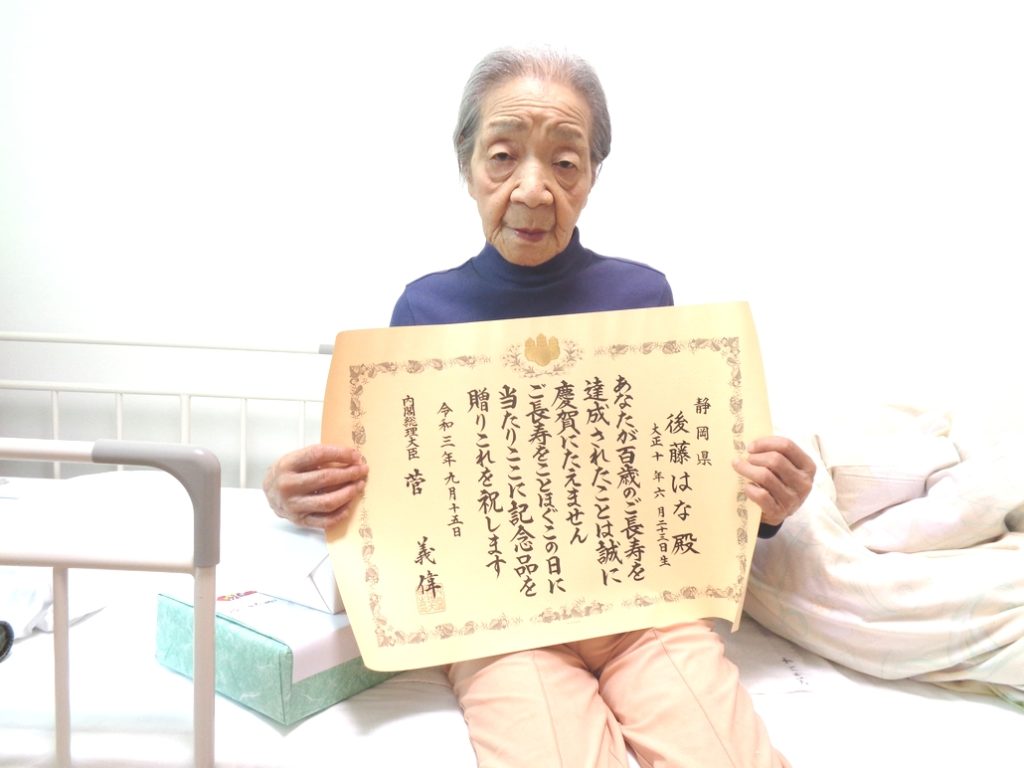 静岡県
後藤はな殿
大正十年六月二十三日生
あなたが百歳のご長寿を
達成されたことは誠に
慶賀にたえません
ご長寿をことほぐこの日に
当たりここに記念品を
贈りこれを祝します
令和三年九月十五日
内閣総理大臣 菅 義偉